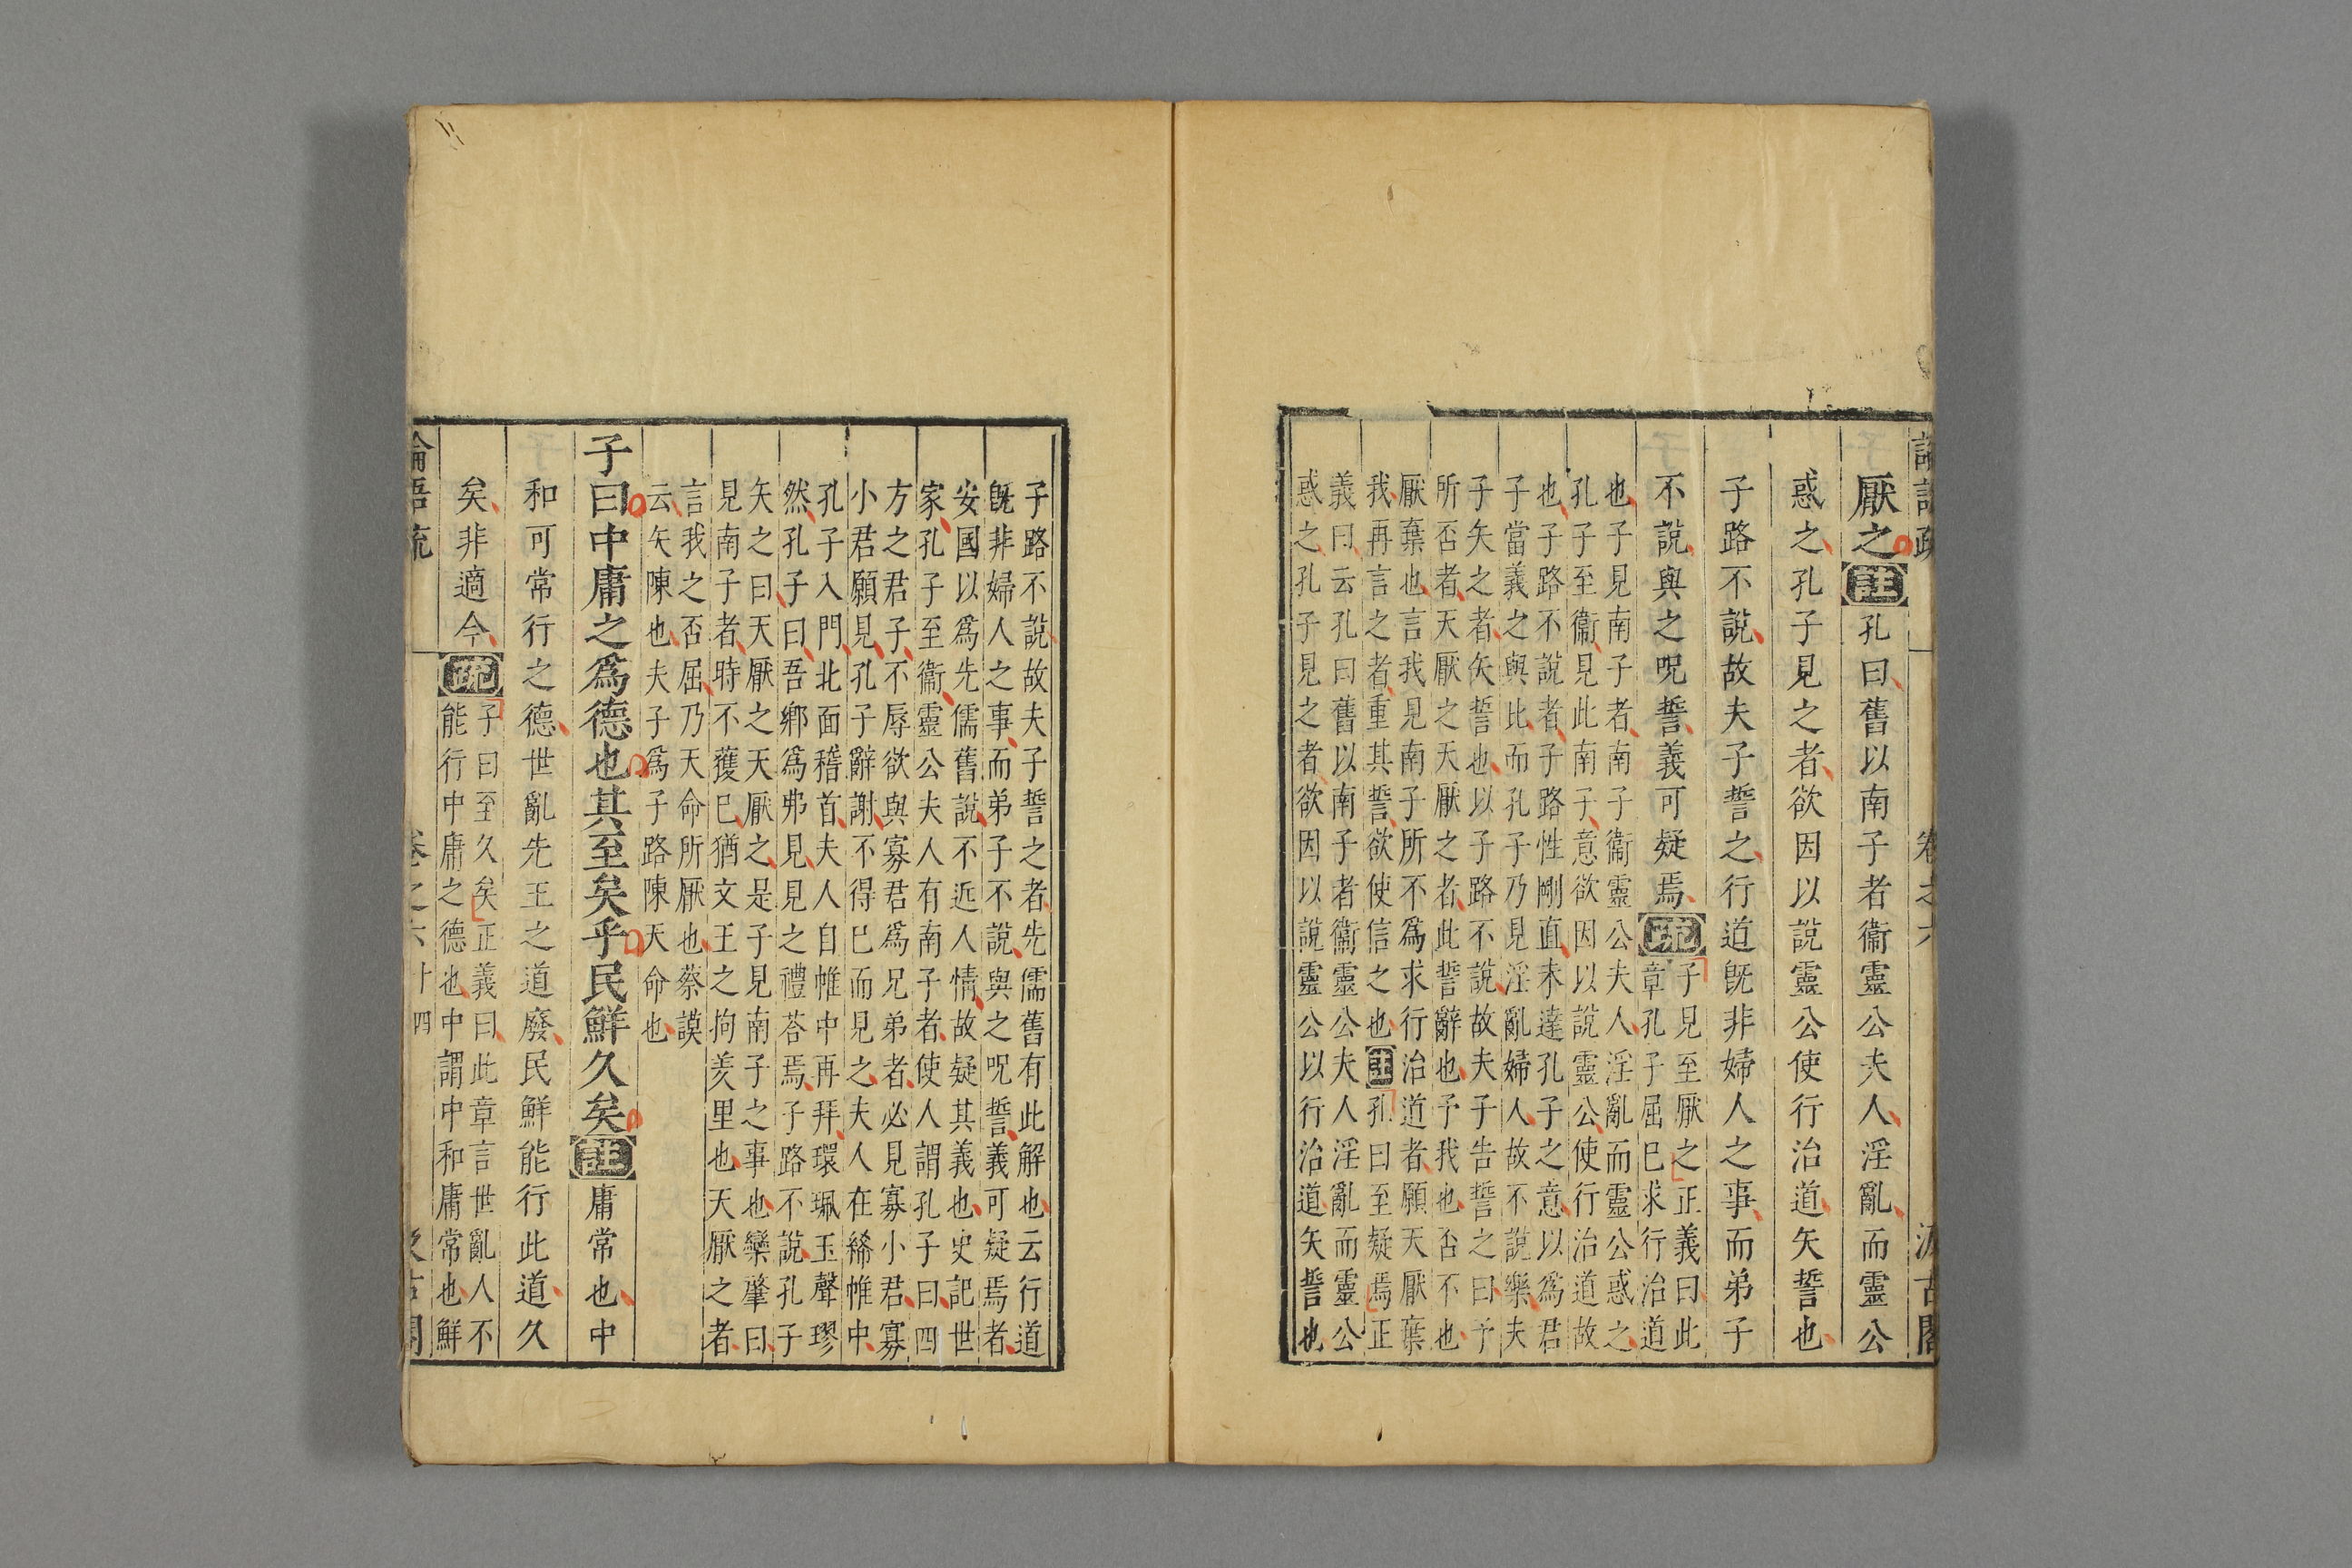 厭之註孔曰舊以南子者衞靈公夫人淫亂而靈公
惑之孔子見之者欲因以說靈公使行治道矢誓也
子路不說故夫子誓之行道旣非婦人之事而弟子
不說與之呪誓義可疑焉疏
子見至厭之正義曰此
章孔子屈已求行治道
也子見南子者南子衞靈公夫人淫亂而靈公惑之
孔子至衞見此南子意欲因以說靈公使行治道故
也子路不說者子路性剛直未達孔子之意以爲君
子當義之與比而孔子乃見淫亂婦人故不說樂夫
子矢之者矢誓也以子路不說故夫子告誓之曰予
所否者天厭之天厭之者此誓辭也予我也否不也
厭棄也言我見南子所不爲求行治道者願天厭棄
我再言之者重其誓欲使信之也註孔曰至疑焉正
義曰云孔曰舊以南子者衞靈公夫人淫亂而靈公
惑之孔子見之者欲因以說靈公以行治道矢誓也
卷之六
子路不說故夫子誓之者先儒舊有此解也云行道
旣非婦人之事而弟子不說與之呪誓義可疑焉者
安國以爲先儒舊說不近人情故疑其義也史記世
家孔子至衞靈公夫人有南子者使人謂孔子曰四
方之君子不辱欲與寡君爲兄弟者必見寡小君寡
小君願見孔子辭謝不得已而見之夫人在絺帷中
孔子入門北面稽首夫人自帷中再拜環珮玉聲璆
然孔子曰吾鄉爲弗見見之禮荅焉子路不說孔子
矢之曰天厭之天厭之是子見南子之事也欒肇曰
見南子者時不獲已猶文王之拘羑里也天厭之者
言我之否屈乃天命所厭也蔡謨
云矢陳也夫子爲子路陳天命也
子曰中庸之爲德也其至矣乎民鮮久矣註庸常也中
和可常行之德世亂先王之道廢民鮮能行此道久
矣非適今疏
子曰至久矣正義曰此章言世亂人不
能行中庸之德也中謂中和庸常也鮮